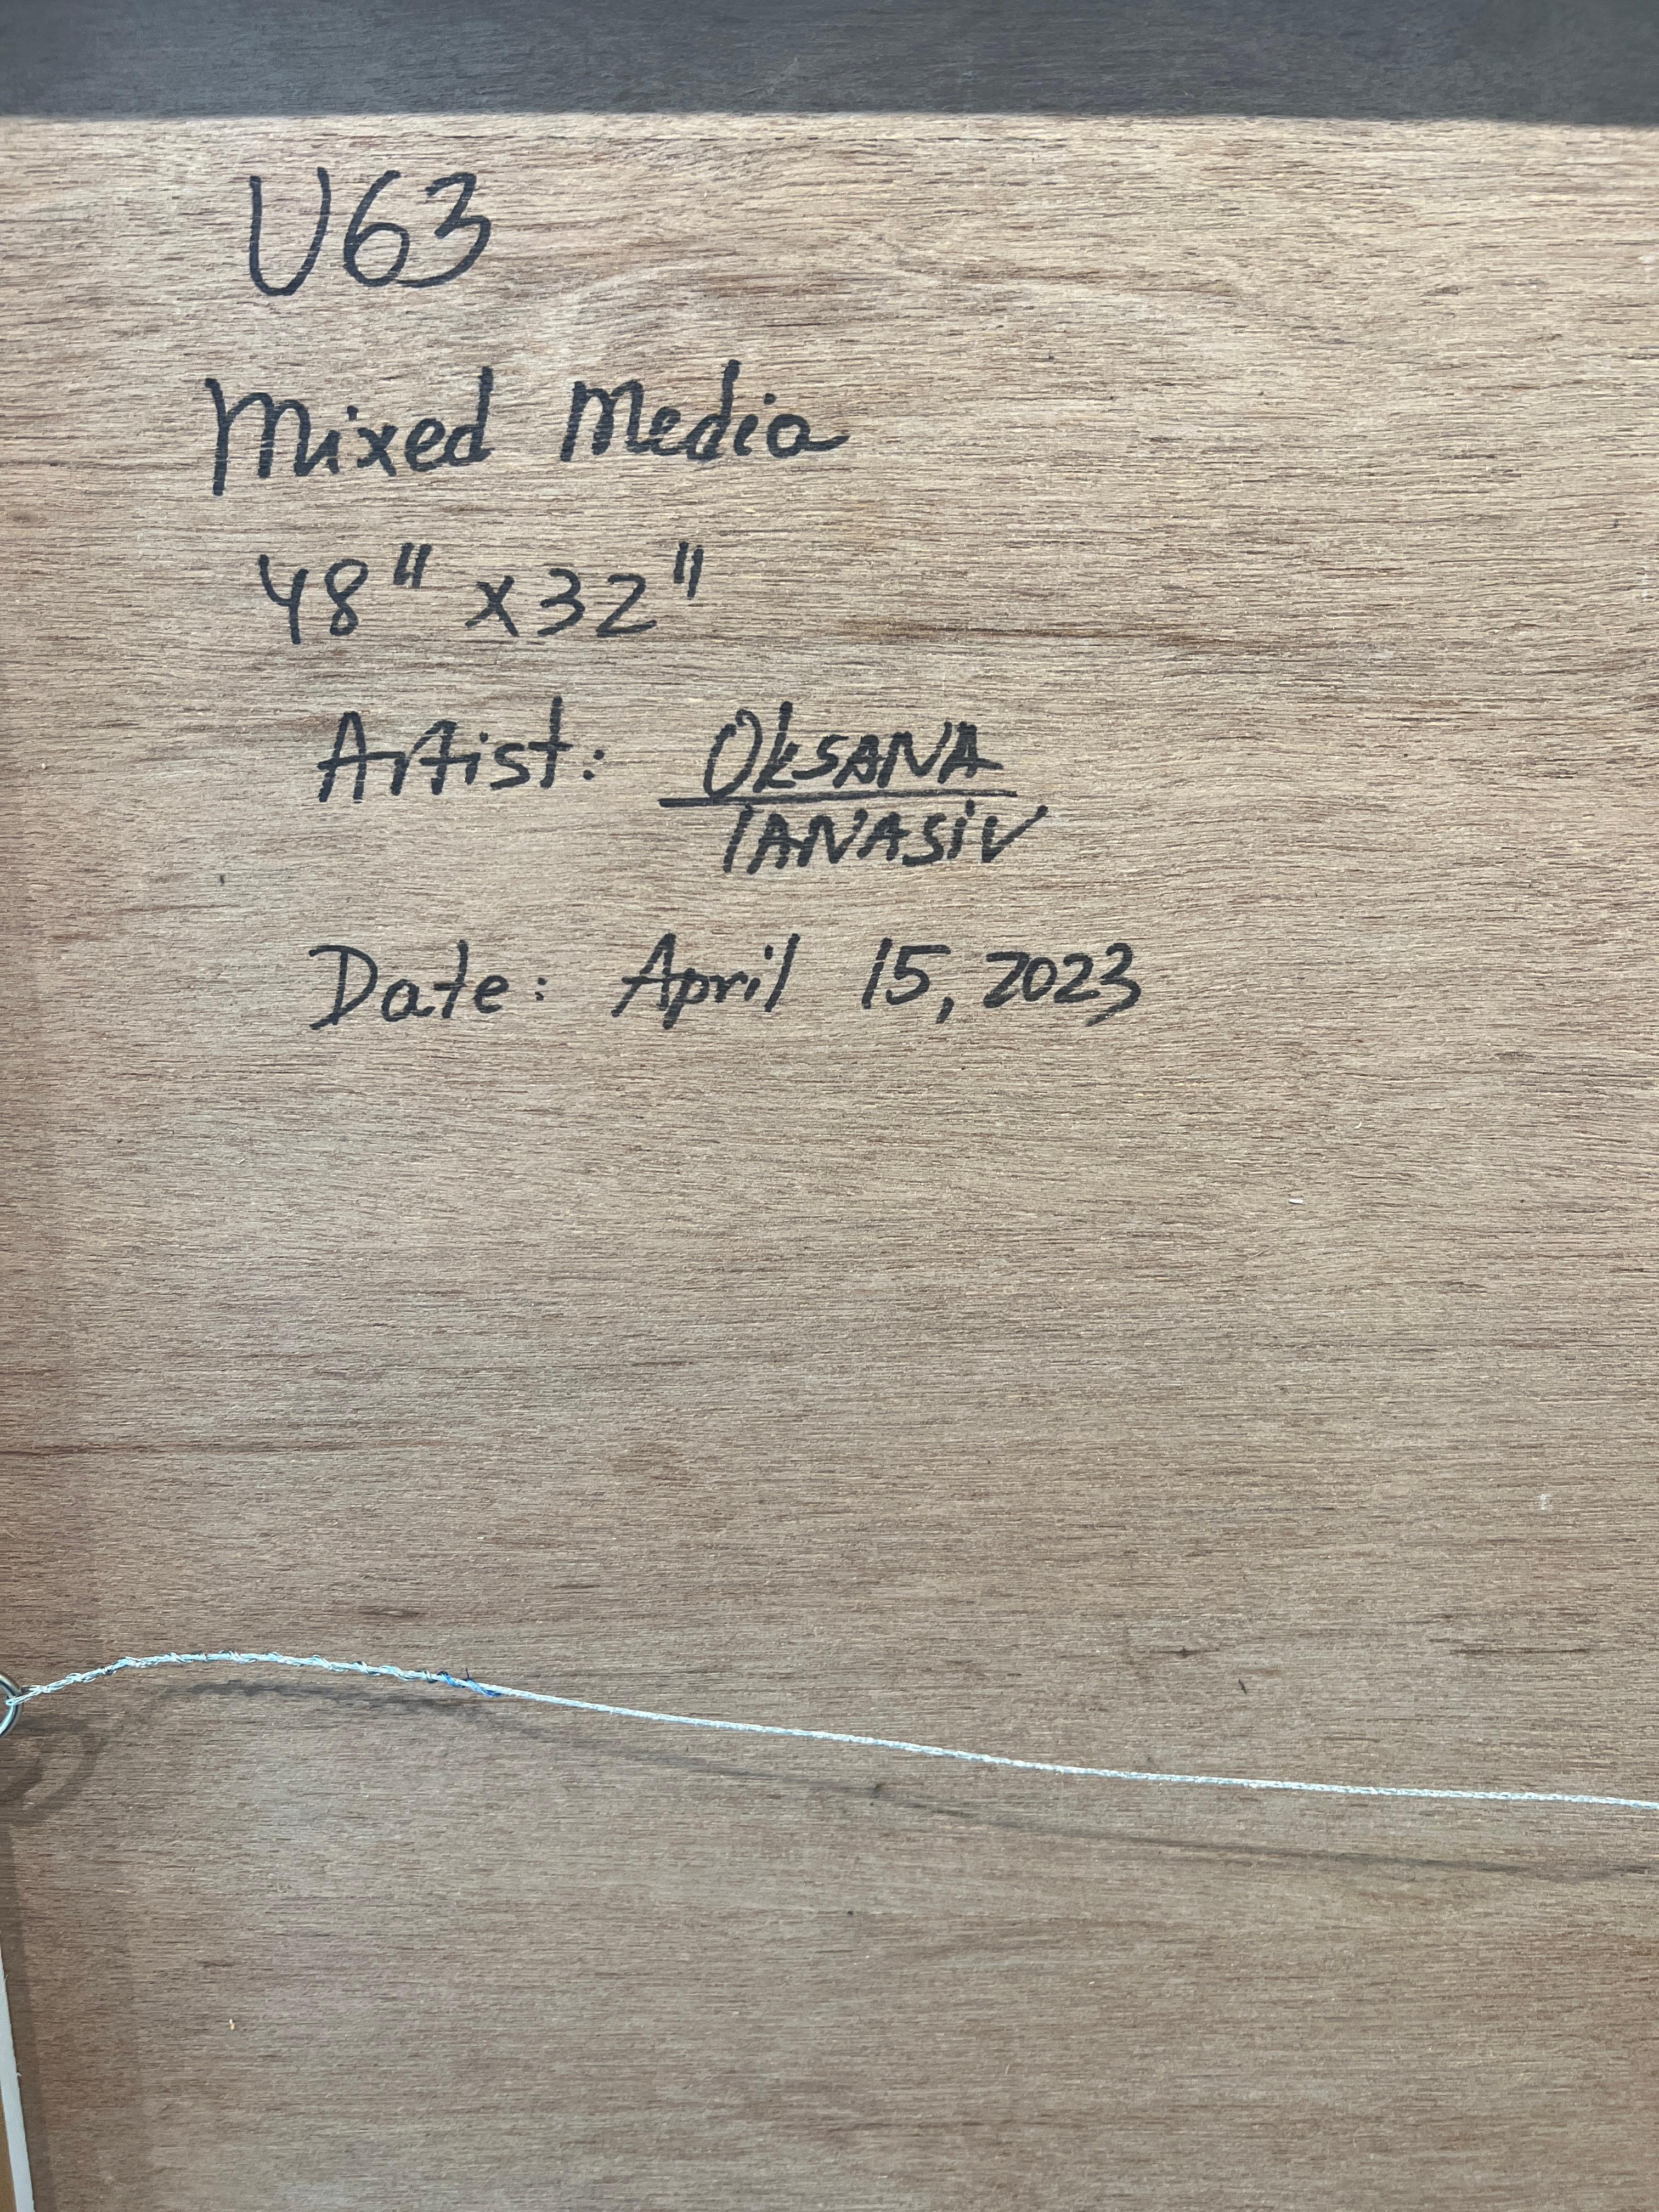 U63
Mixed Media
48" x 32"
Artist: OksANA
IANASiV
Date: April 15, 2023